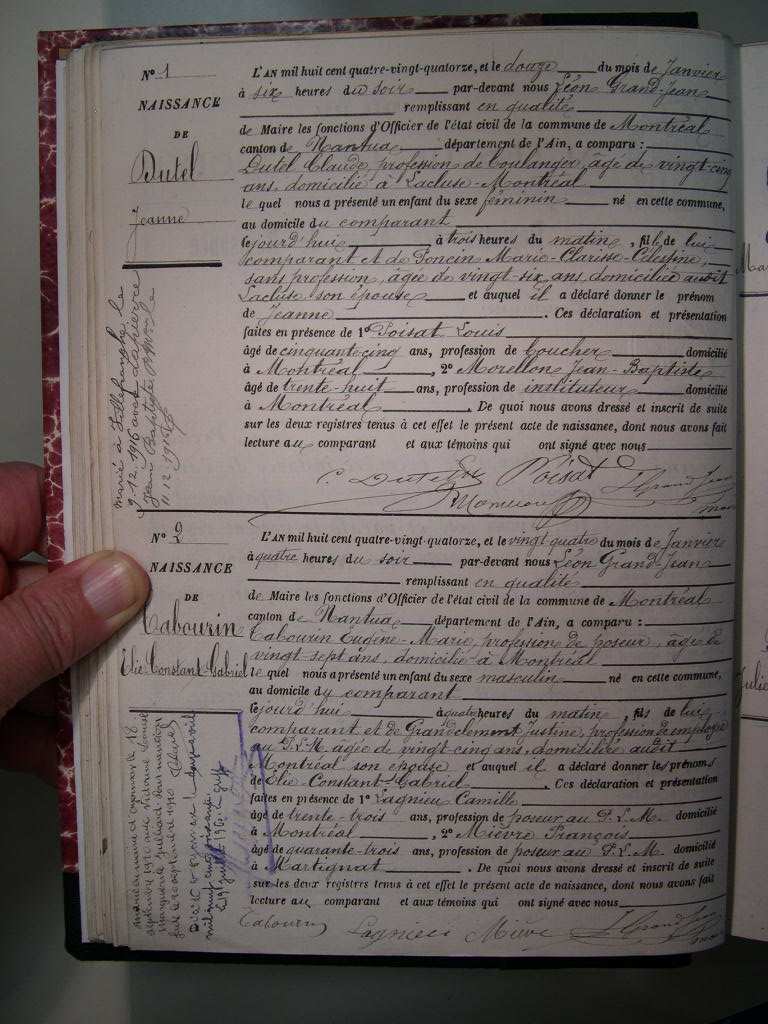 N° 1
NAISSANCE
DE
Dutel
Jeanne
L'AN mil huit cent quatre-vingt-quatorze, et le douze du mois de Janvier
à six heures du soir par-devant nous Léon Grand-Jean
remplissant en qualité
de Maire les fonctions d'Officier de l'état civil de la commune de Montréal
canton de Nantua département de l'Ain, a comparu :
Dutel Claude, profession de boulanger, âgé de vingt-cinq
ans, domicilié à Lacluse-Montréal
le quel nous a présenté un enfant du sexe féminin né en cette commune,
au domicile du comparant
le jourd'hui à trois heures du matin, fille de lui
comparant et de Poncin Marie-Clarisse-Célestine,
sans profession, âgée de vingt-six ans domiciliée audit
Lacluse son épouse et auquel il a déclaré donner le prénom
de Jeanne. Ces déclaration et présentation
faites en présence de 1° Poisat Louis
âgé de cinquante-cinq ans, profession de boucher domicilié
à Montréal, 2° Morellon Jean-Baptiste
âgé de trente-huit ans, profession de instituteur domicilié
à Montréal. De quoi nous avons dressé et inscrit de suite
sur les deux registres tenus à cet effet le présent acte de naissance, dont nous avons fait
lecture au comparant et aux témoins qui ont signé avec nous
C. Dutel Poisat L. Grand-Jean
marié à Villefranche le
9.12.1916 avec
Jean Baptiste
N° 2
NAISSANCE
DE
Cabourin
Elie-Constant-Gabriel
L'AN mil huit cent quatre-vingt-quatorze, et le vingt quatre du mois de Janvier
à quatre heures du soir par-devant nous Léon Grand-Jean
remplissant en qualité
de Maire les fonctions d'Officier de l'état civil de la commune de Montréal
canton de Nantua département de l'Ain, a comparu :
Cabourin Eugène-Marie, profession de poseur, âgé de
vingt-sept ans, domicilié à Montréal
le quel nous a présenté un enfant du sexe masculin né en cette commune,
au domicile dy comparant
le jourd'hui à quatre heures du matin, fils de lui
comparant et de Grandclement Justine, profession de employée
au P.L.M. âgée de vingt-cinq ans, domiciliée audit
Montréal son épouse et auquel il a déclaré donner les prénoms
de Elie-Constant-Gabriel. Ces déclaration et présentation
faites en présence de 1° Lagnieu Camille
âgé de trente-trois ans, profession de poseur au P.L.M. domicilié
à Montréal, 2° Mièvre François
âgé de quarante-trois ans, profession de poseur au P.L.M. domicilié
à Martignat. De quoi nous avons dressé et inscrit de suite
sur les deux registres tenus à cet effet le présent acte de naissance, dont nous avons fait
lecture au comparant et aux témoins qui ont signé avec nous
Cabourin Lagnieu Mièvre L. Grand-Jean